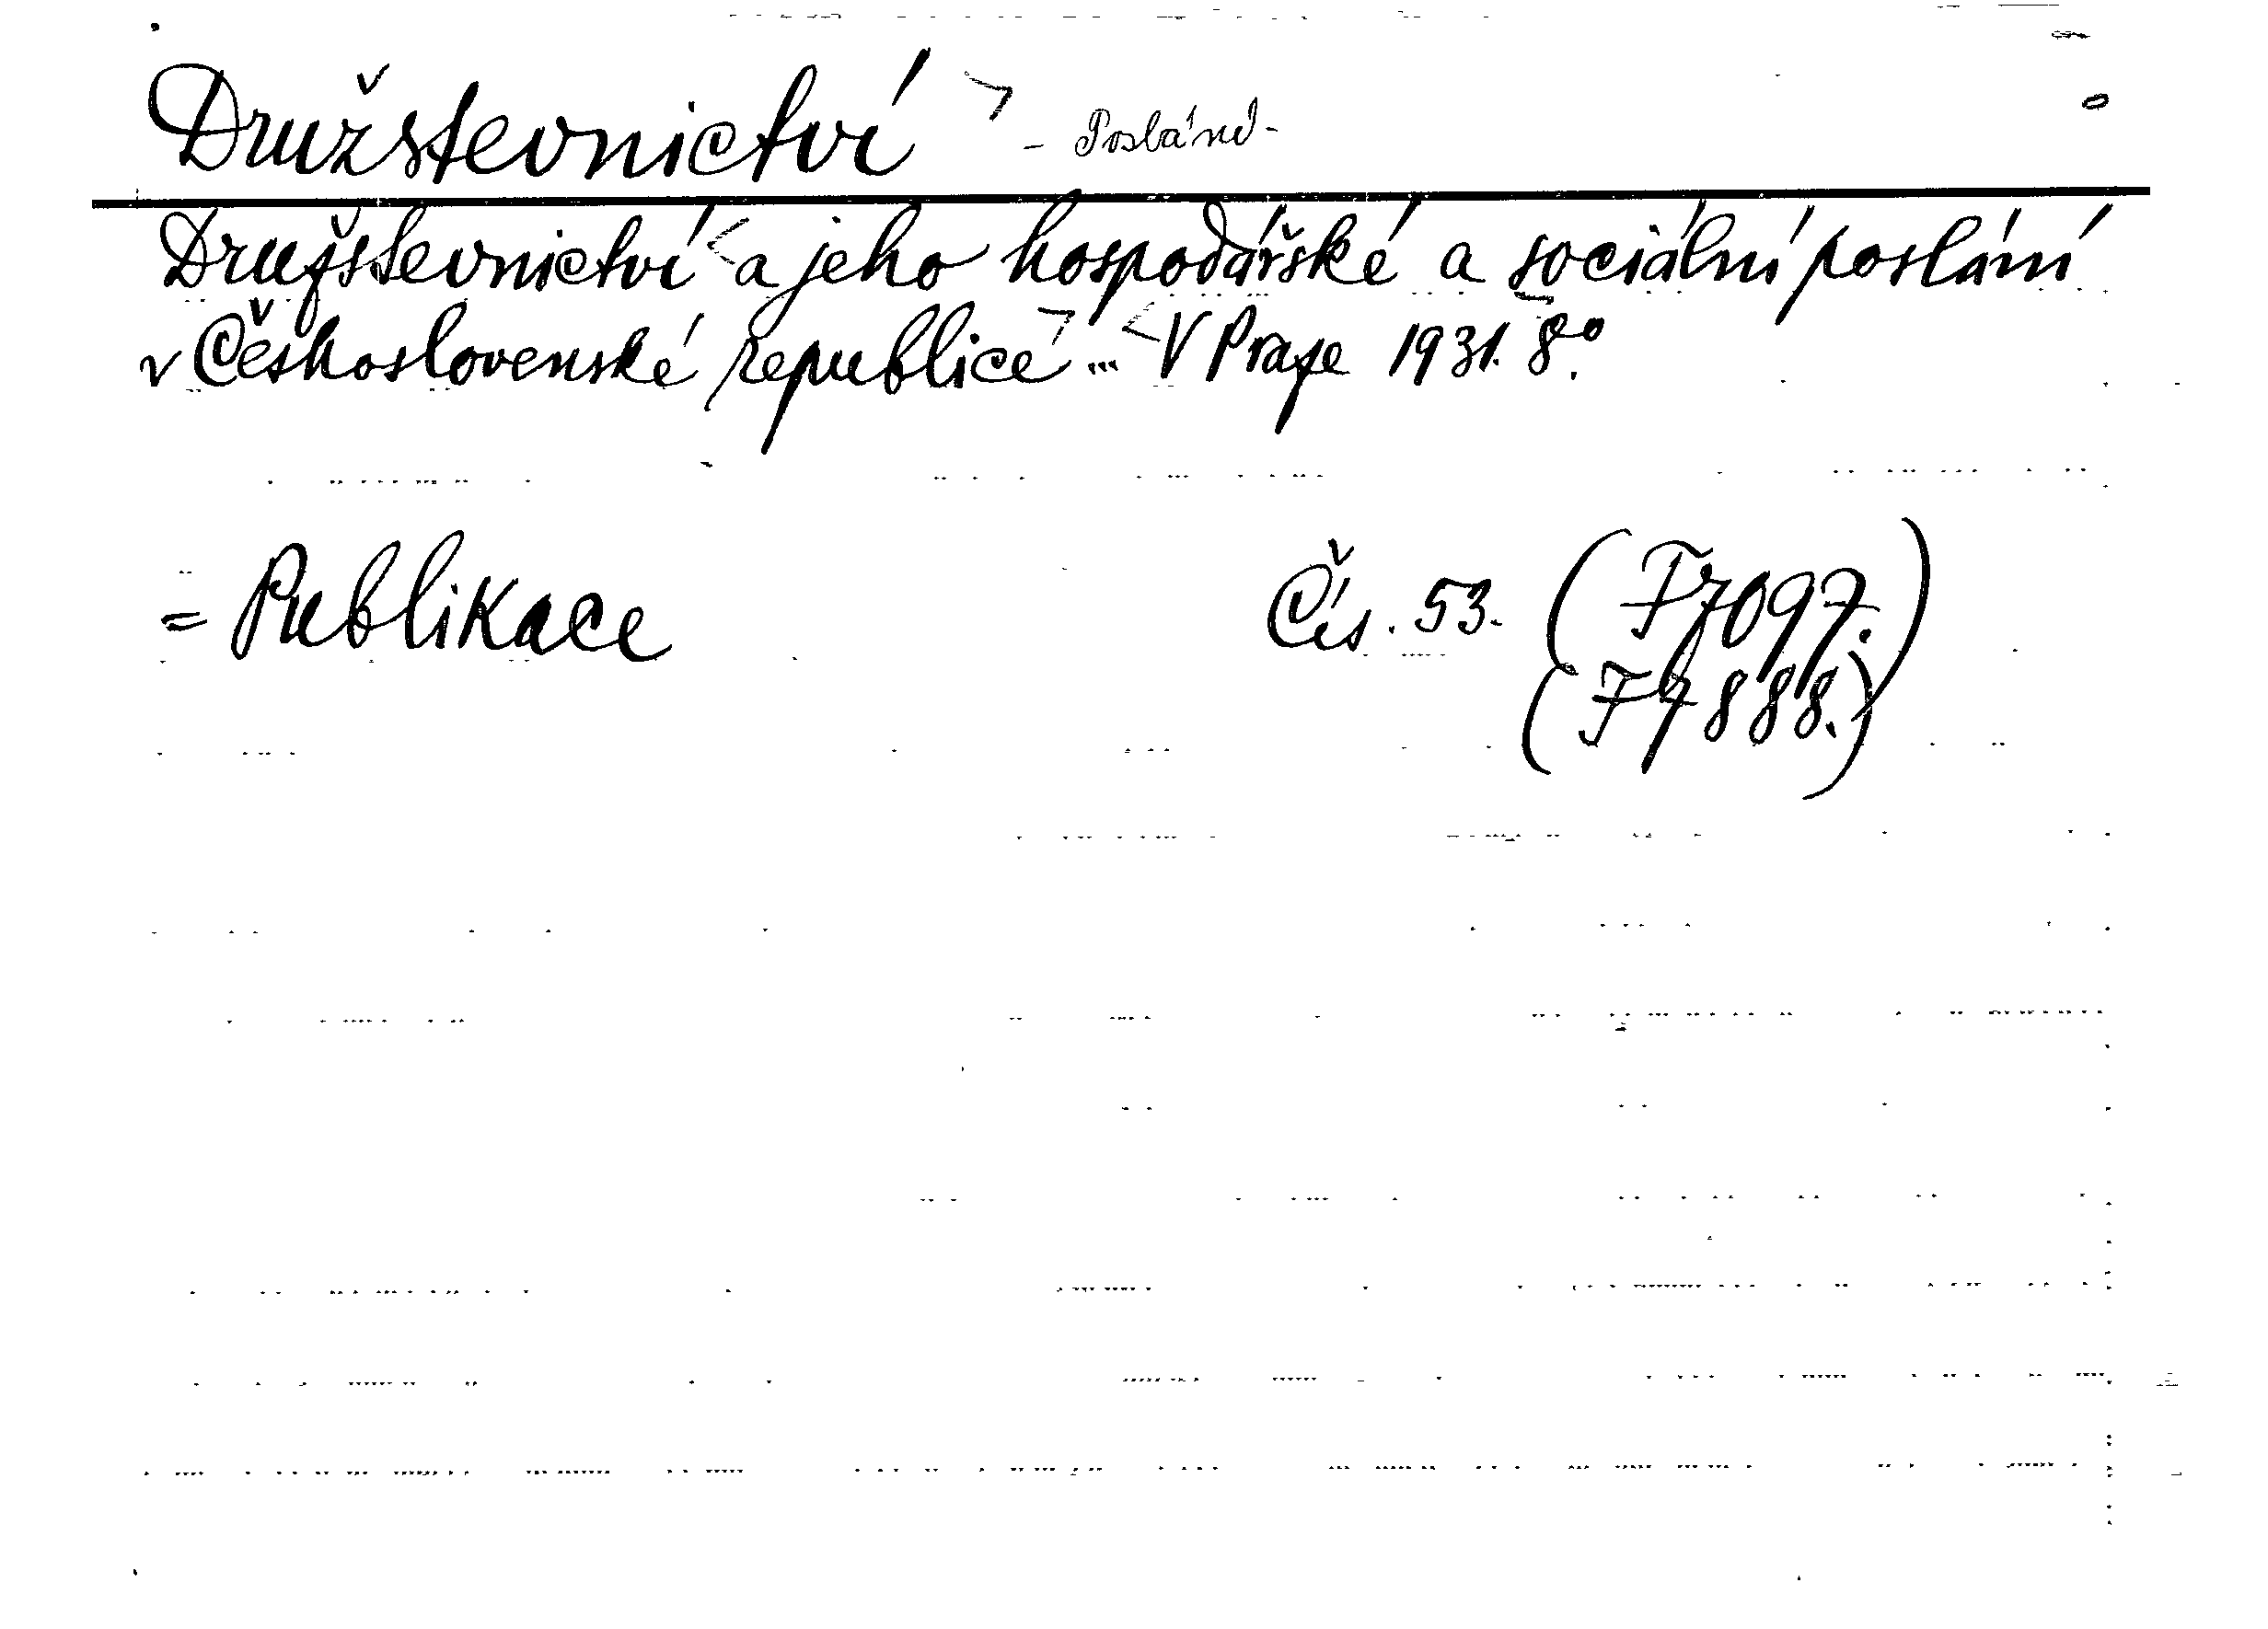 Družstevnictví - Poslání -
Družstevnictví a jeho hospodářské a sociální poslání
v Československé republice ... V Praze 1931. 8°.
= Publikace Čís. 53. (F7097.)
(F7888.)